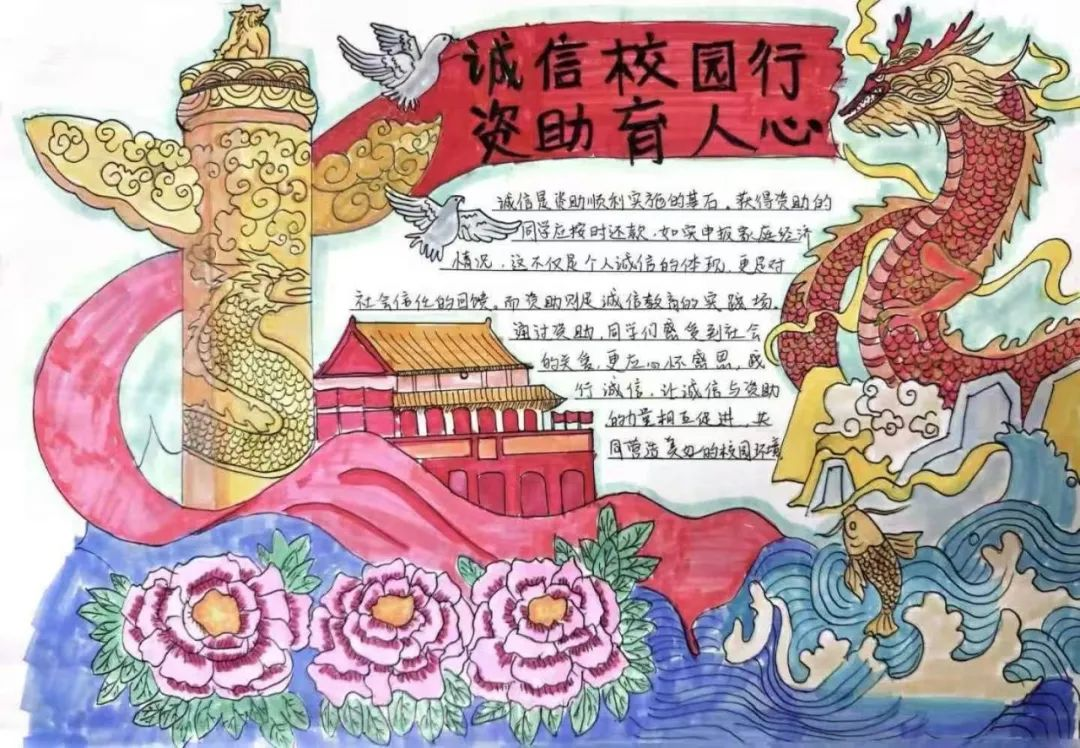 诚信校园行
资助育人心
诚信是资助顺利实施的基石。获得资助的
同学应按时还款、如实申报家庭经济
情况，这不仅是个人诚信的体现，更是对
社会信任的回馈。而资助则是诚信教育的实践场，
通过资助，同学们感受到社会
的关爱，更应心怀感恩，践
行诚信，让诚信与资助
的力量相互促进，共
同营造美好的校园环境